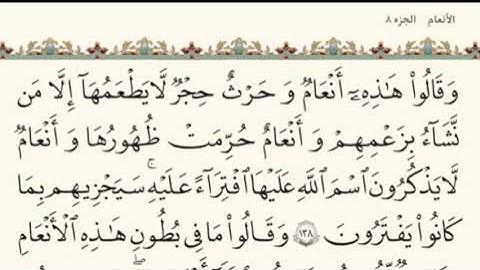 الأنعام الجزء ٨
وَقَالُوا۟ هَـٰذِهِۦٓ أَنْعَـٰمٌ وَحَرْثٌ حِجْرٌ لَّا يَطْعَمُهَآ إِلَّا مَن
نَّشَآءُ بِزَعْمِهِمْ وَأَنْعَـٰمٌ حُرِّمَتْ ظُهُورُهَا وَأَنْعَـٰمٌ
لَّا يَذْكُرُونَ ٱسْمَ ٱللَّهِ عَلَيْهَا ٱفْتِرَآءً عَلَيْهِ ۚ سَيَجْزِيهِم بِمَا
كَانُوا۟ يَفْتَرُونَ ﴿١٣٨﴾ وَقَالُوا۟ مَا فِى بُطُونِ هَـٰذِهِ ٱلْأَنْعَـٰمِ